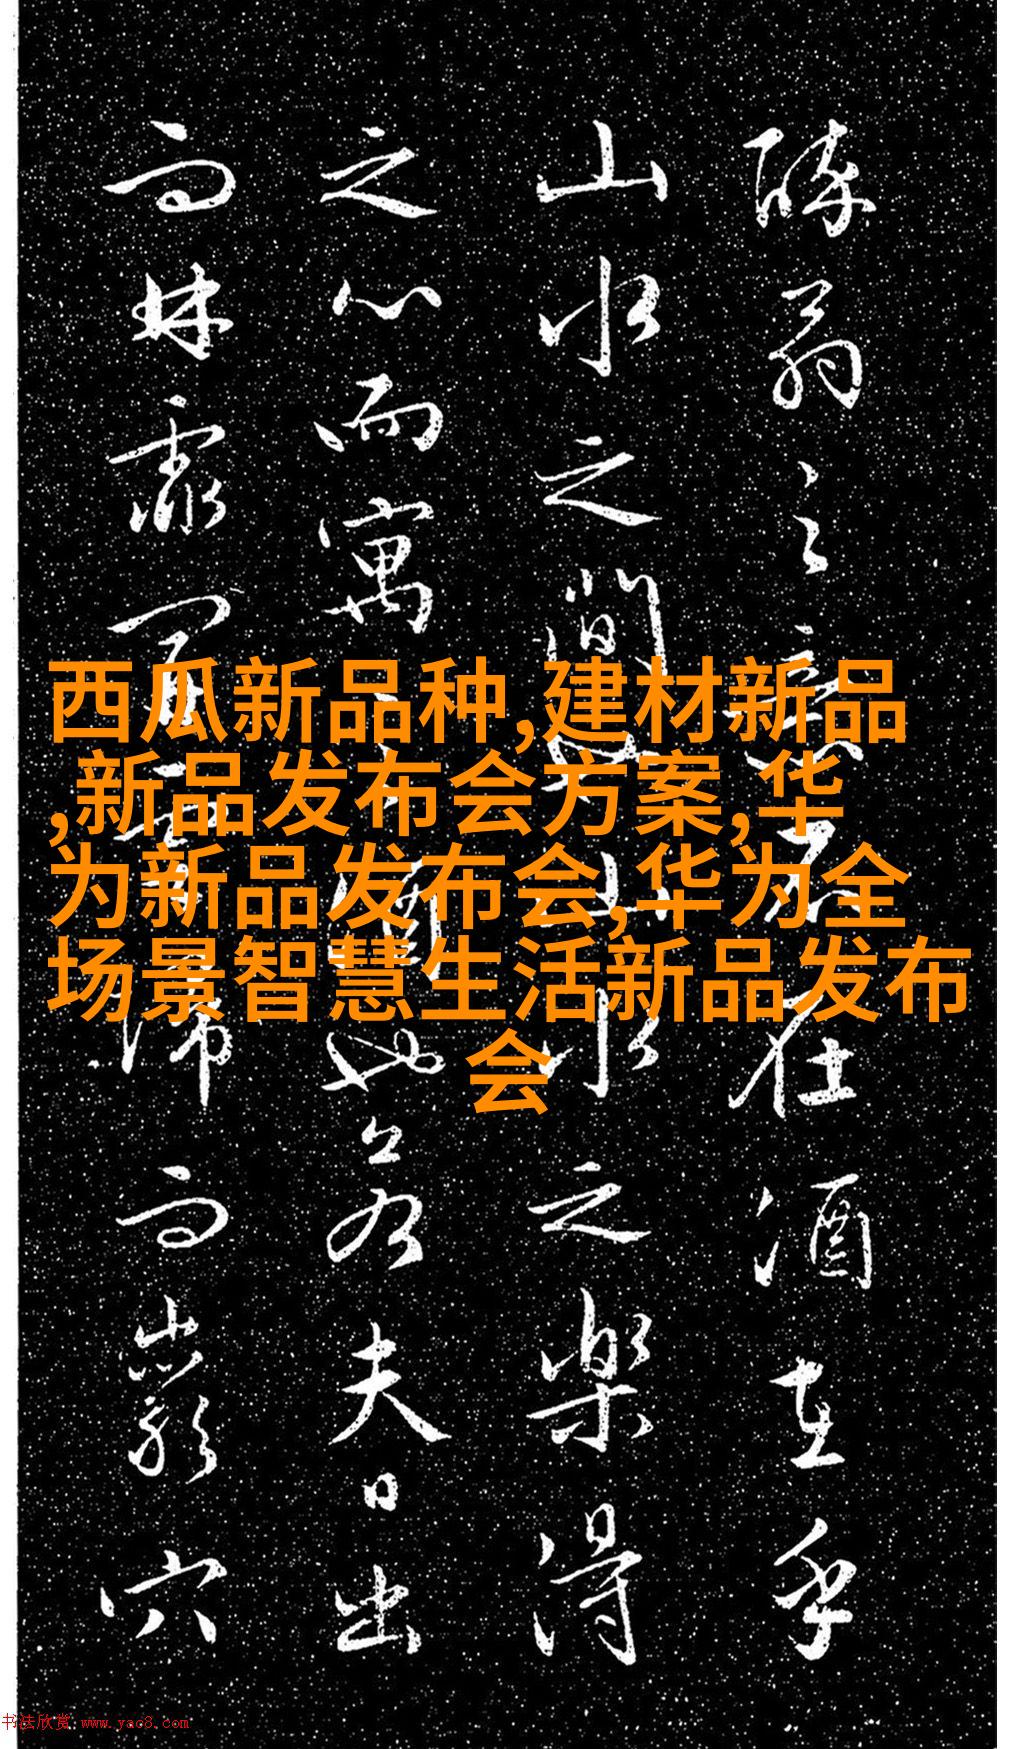 醉翁之意不在酒在乎
山水之間也山水之樂得
之心而寓之酒也若夫日出
而林霏開雲歸而巖穴
西瓜新品种,建材新品
,新品发布会方案,华
为新品发布会,华为全
场景智慧生活新品发布
会
书法欣赏 www.yac8.com